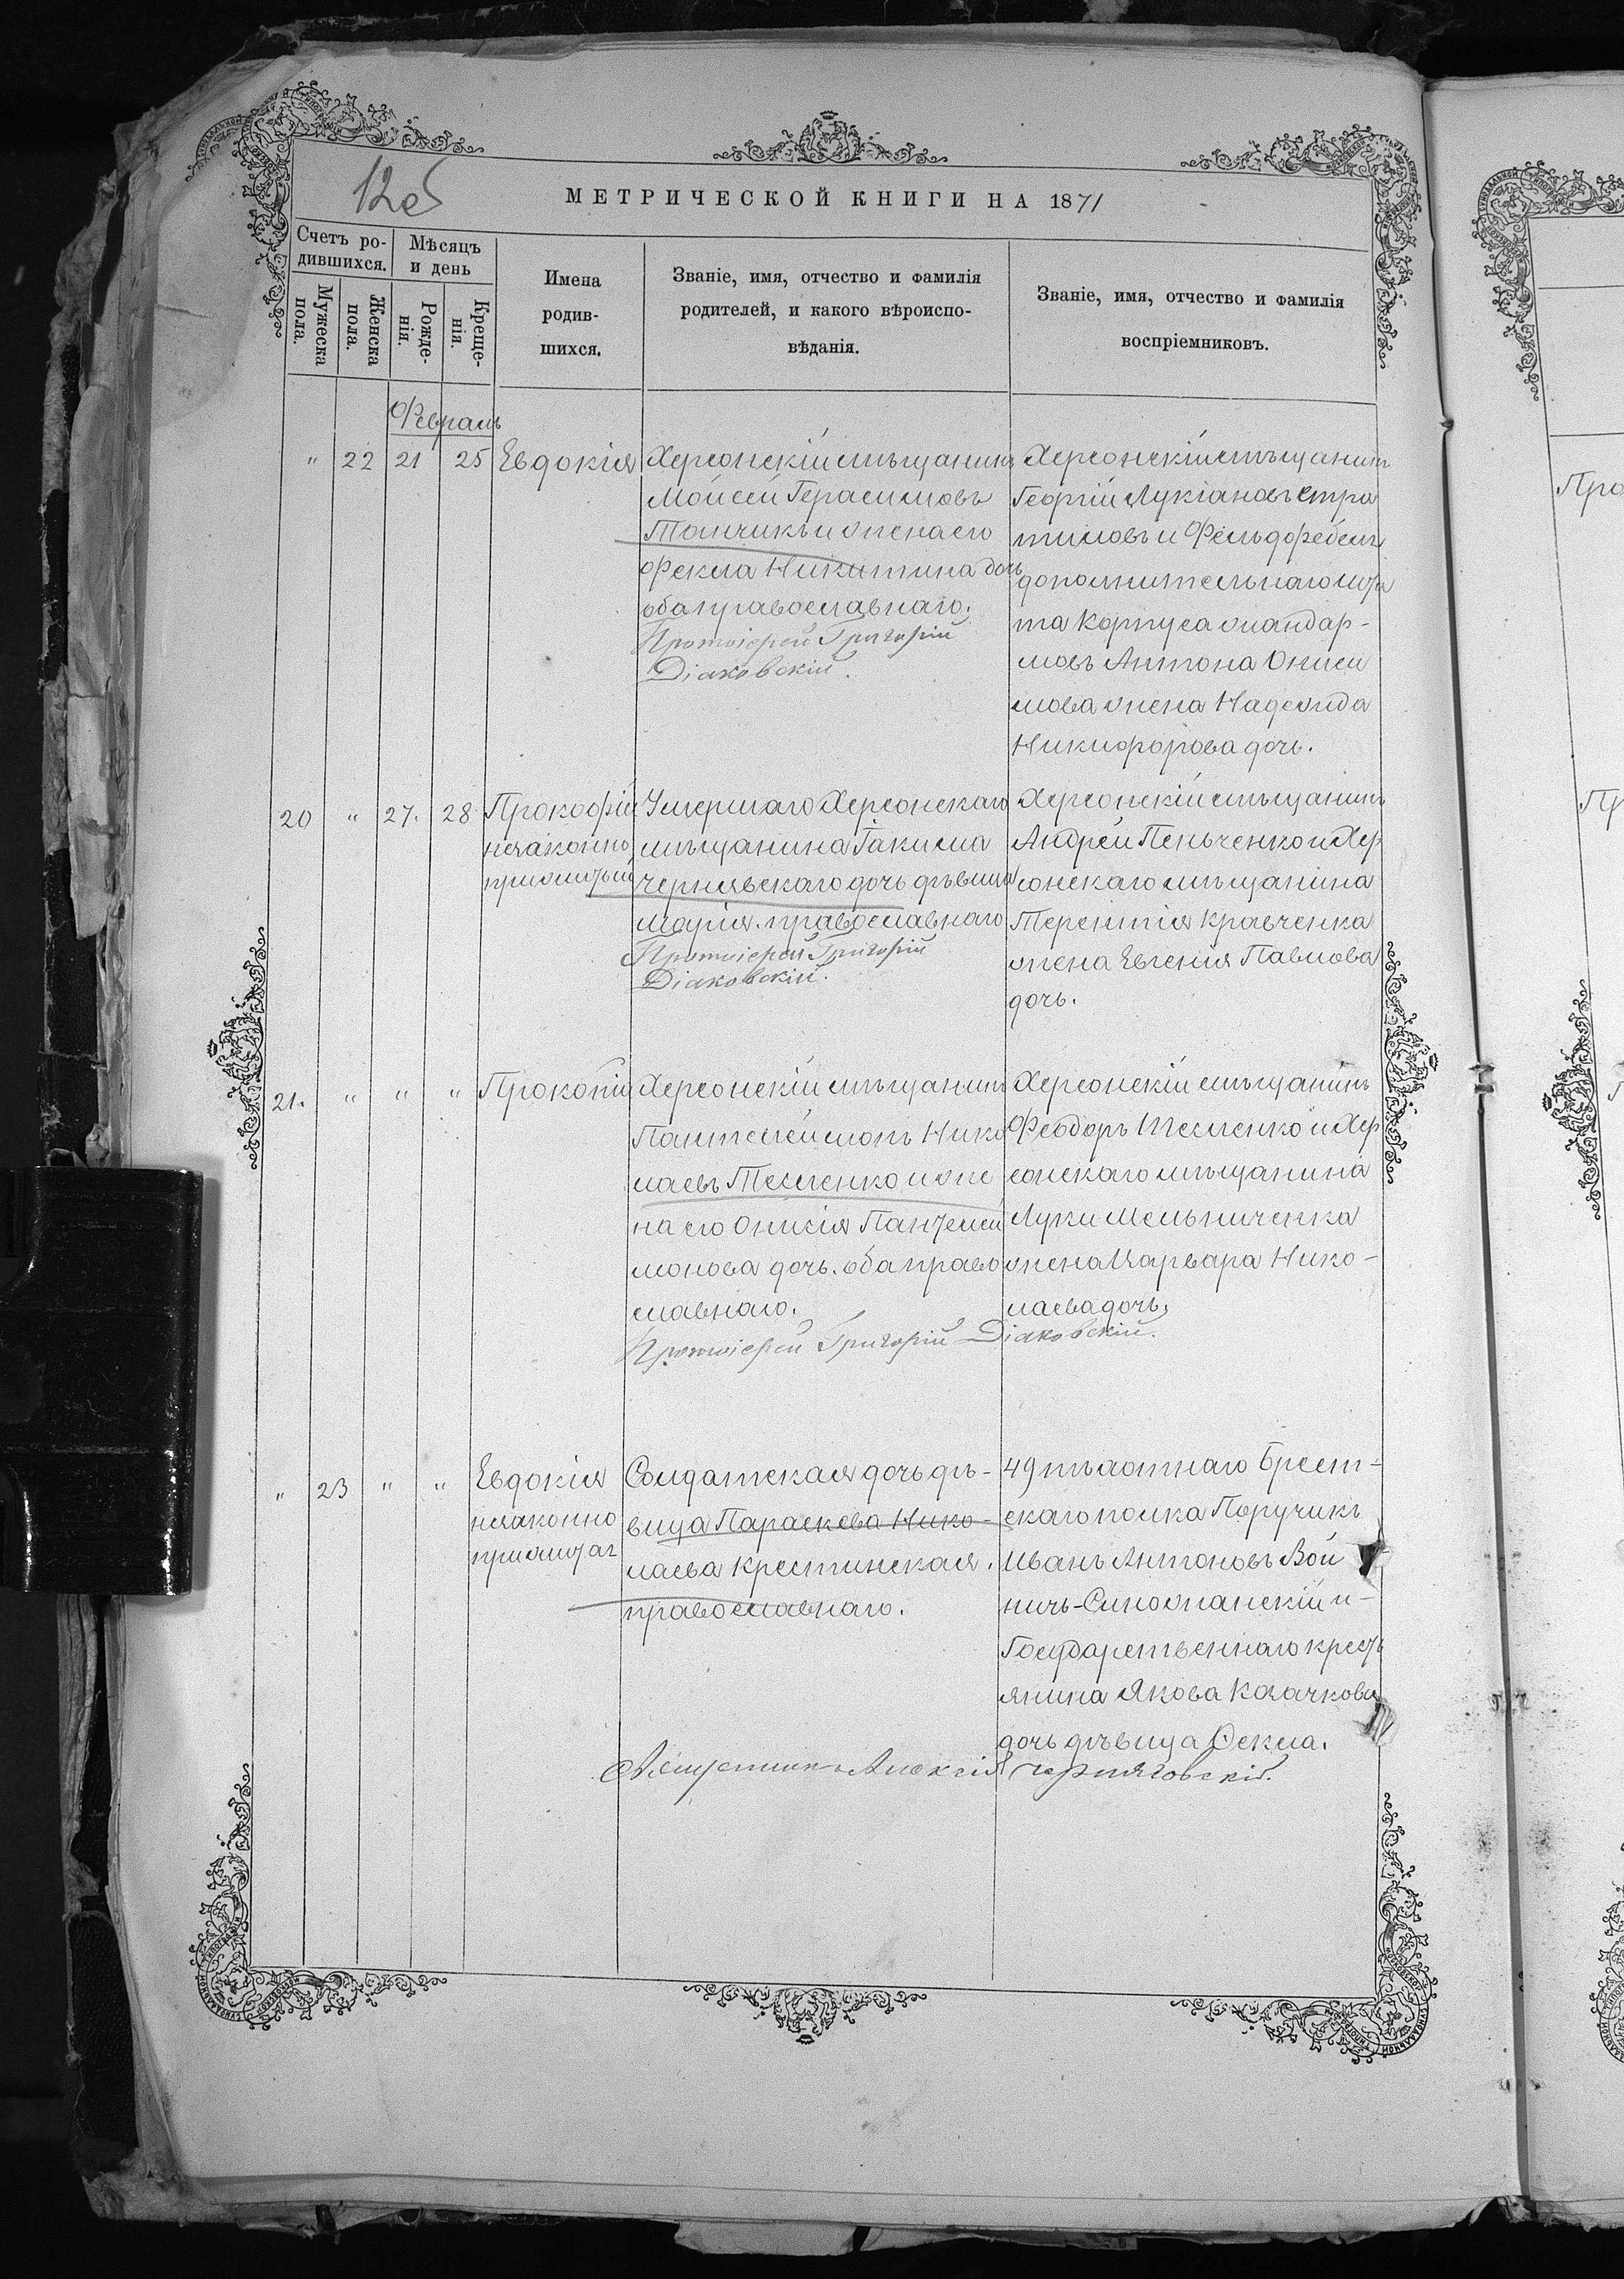 12об
МЕТРИЧЕСКОЙ КНИГИ НА 1871
Счетъ ро-
дившихся.
Мѣсяцъ
и день
Мужеска
пола.
Женска
пола.
Рожде-
нія.
Креще-
нія.
Имена
родив-
шихся.
Званіе, имя, отчество и фамилія
родителей, и какого вѣроиспо-
вѣданія.
Званіе, имя, отчество и фамилія
воспріемниковъ.
Февраль
" 22 21 25 Евдокія
Херсонскій мѣщанинъ
Мойсей Герасимовъ
Танчикъ и жена его
Фекла Никитина дочь
оба православнаго.
Протоіерей Григорій
Діаковскій.
Херсонскій мѣщанинъ
Георгій Лукіановъ Стра
тиловъ и Фельдфебеля
дополнительнаго шта
та Корпуса жандар-
мовъ Антона Ониси
мова жена Надежда
Никифорова дочь.
20 " 27. 28 Прокофій
незаконно
прижитый
Умершаго Херсонскаго
мѣщанина Іакима
Чернявскаго дочь дѣвица
Марія. православнаго
Протоіерей Григорій
Діаковскій.
Херсонскій мѣщанинъ
Андрей Пеньченко и Хер
сонскаго мѣщанина
Терентія Кравченка
жена Евгенія Павлова
дочь.
21. " " " Прокопій
Херсонскій мѣщанинъ
Пантелеймонъ Нико
лаевъ Тесленко и же
на его Онисія Пантелей
монова дочь. оба право
славнаго.
Протоіерей Григорій Діаковскій.
Херсонскій мѣщанинъ
Феодоръ Тесленко и Хер
сонскаго мѣщанина
Луки Мельниченка
жена Варвара Нико-
лаева дочь.
" 23 " " Евдокія
незаконно
прижитая
Солдатская дочь дѣ-
вица Параскева Нико-
лаева Крестинская.
православнаго.
49 пѣхотнаго Брест-
скаго полка Поручикъ
Иванъ Антоновъ Вой
ничъ-Сяножанскій и-
Государственнаго крест
янина Якова Казачкова
дочь дѣвица Фекла.
Священникъ Алексій Черняховскій.